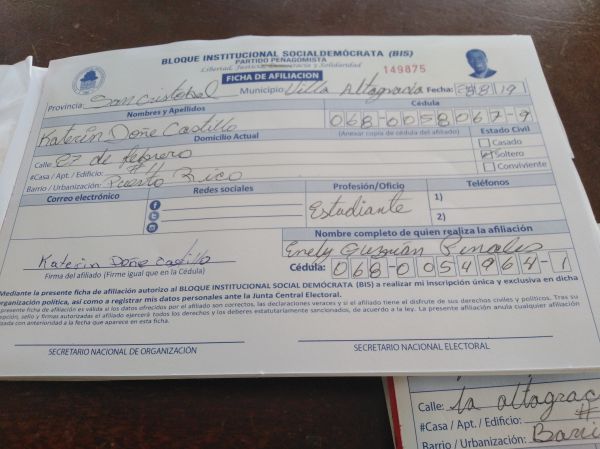 BLOQUE INSTITUCIONAL SOCIALDEMÓCRATA (BIS)
PARTIDO PEÑAGOMISTA
Libertad, Justicia, Democracia y Solidaridad
149875
FICHA DE AFILIACION
Provincia: San Cristobal Municipio: Villa Altagracia Fecha: 28/8/19
Nombres y Apellidos Cédula
Katerin Doñe Castillo 068-0058067-9
Domicilio Actual (Anexar copia de cédula del afiliado) Estado Civil
Calle: 27 de febrero Casado
#Casa / Apt. / Edificio: Soltero
Barrio / Urbanización: Puerto Rico Conviviente
Correo electrónico Redes sociales Profesión/Oficio Teléfonos
Estudiante 1)
2)
Nombre completo de quien realiza la afiliación
Enely Guzmán Pinales
Katerin Doñe Castillo Cédula: 068-0054964-1
Firma del afiliado (Firme igual que en la Cédula)
Mediante la presente ficha de afiliación autorizo al BLOQUE INSTITUCIONAL SOCIAL DEMÓCRATA (BIS) a realizar mi inscripción única y exclusiva en dicha
organización política, así como a registrar mis datos personales ante la Junta Central Electoral.
presente ficha de afiliación es válida si los datos ofrecidos por el afiliado son correctos, las declaraciones veraces y si el afiliado tiene el disfrute de sus derechos civiles y políticos. Tras su
pción, sello y firmas autorizadas el afiliado ejercerá todos los derechos y los deberes estatutariamente sancionados, de acuerdo a la ley. La presente afiliación anula cualquier afiliación
zada con anterioridad a la fecha que aparece en esta ficha.
SECRETARIO NACIONAL DE ORGANIZACIÓN SECRETARIO NACIONAL ELECTORAL
Calle: la altagrac
#Casa / Apt. / Edificio: #
Barrio / Urbanización: Barri